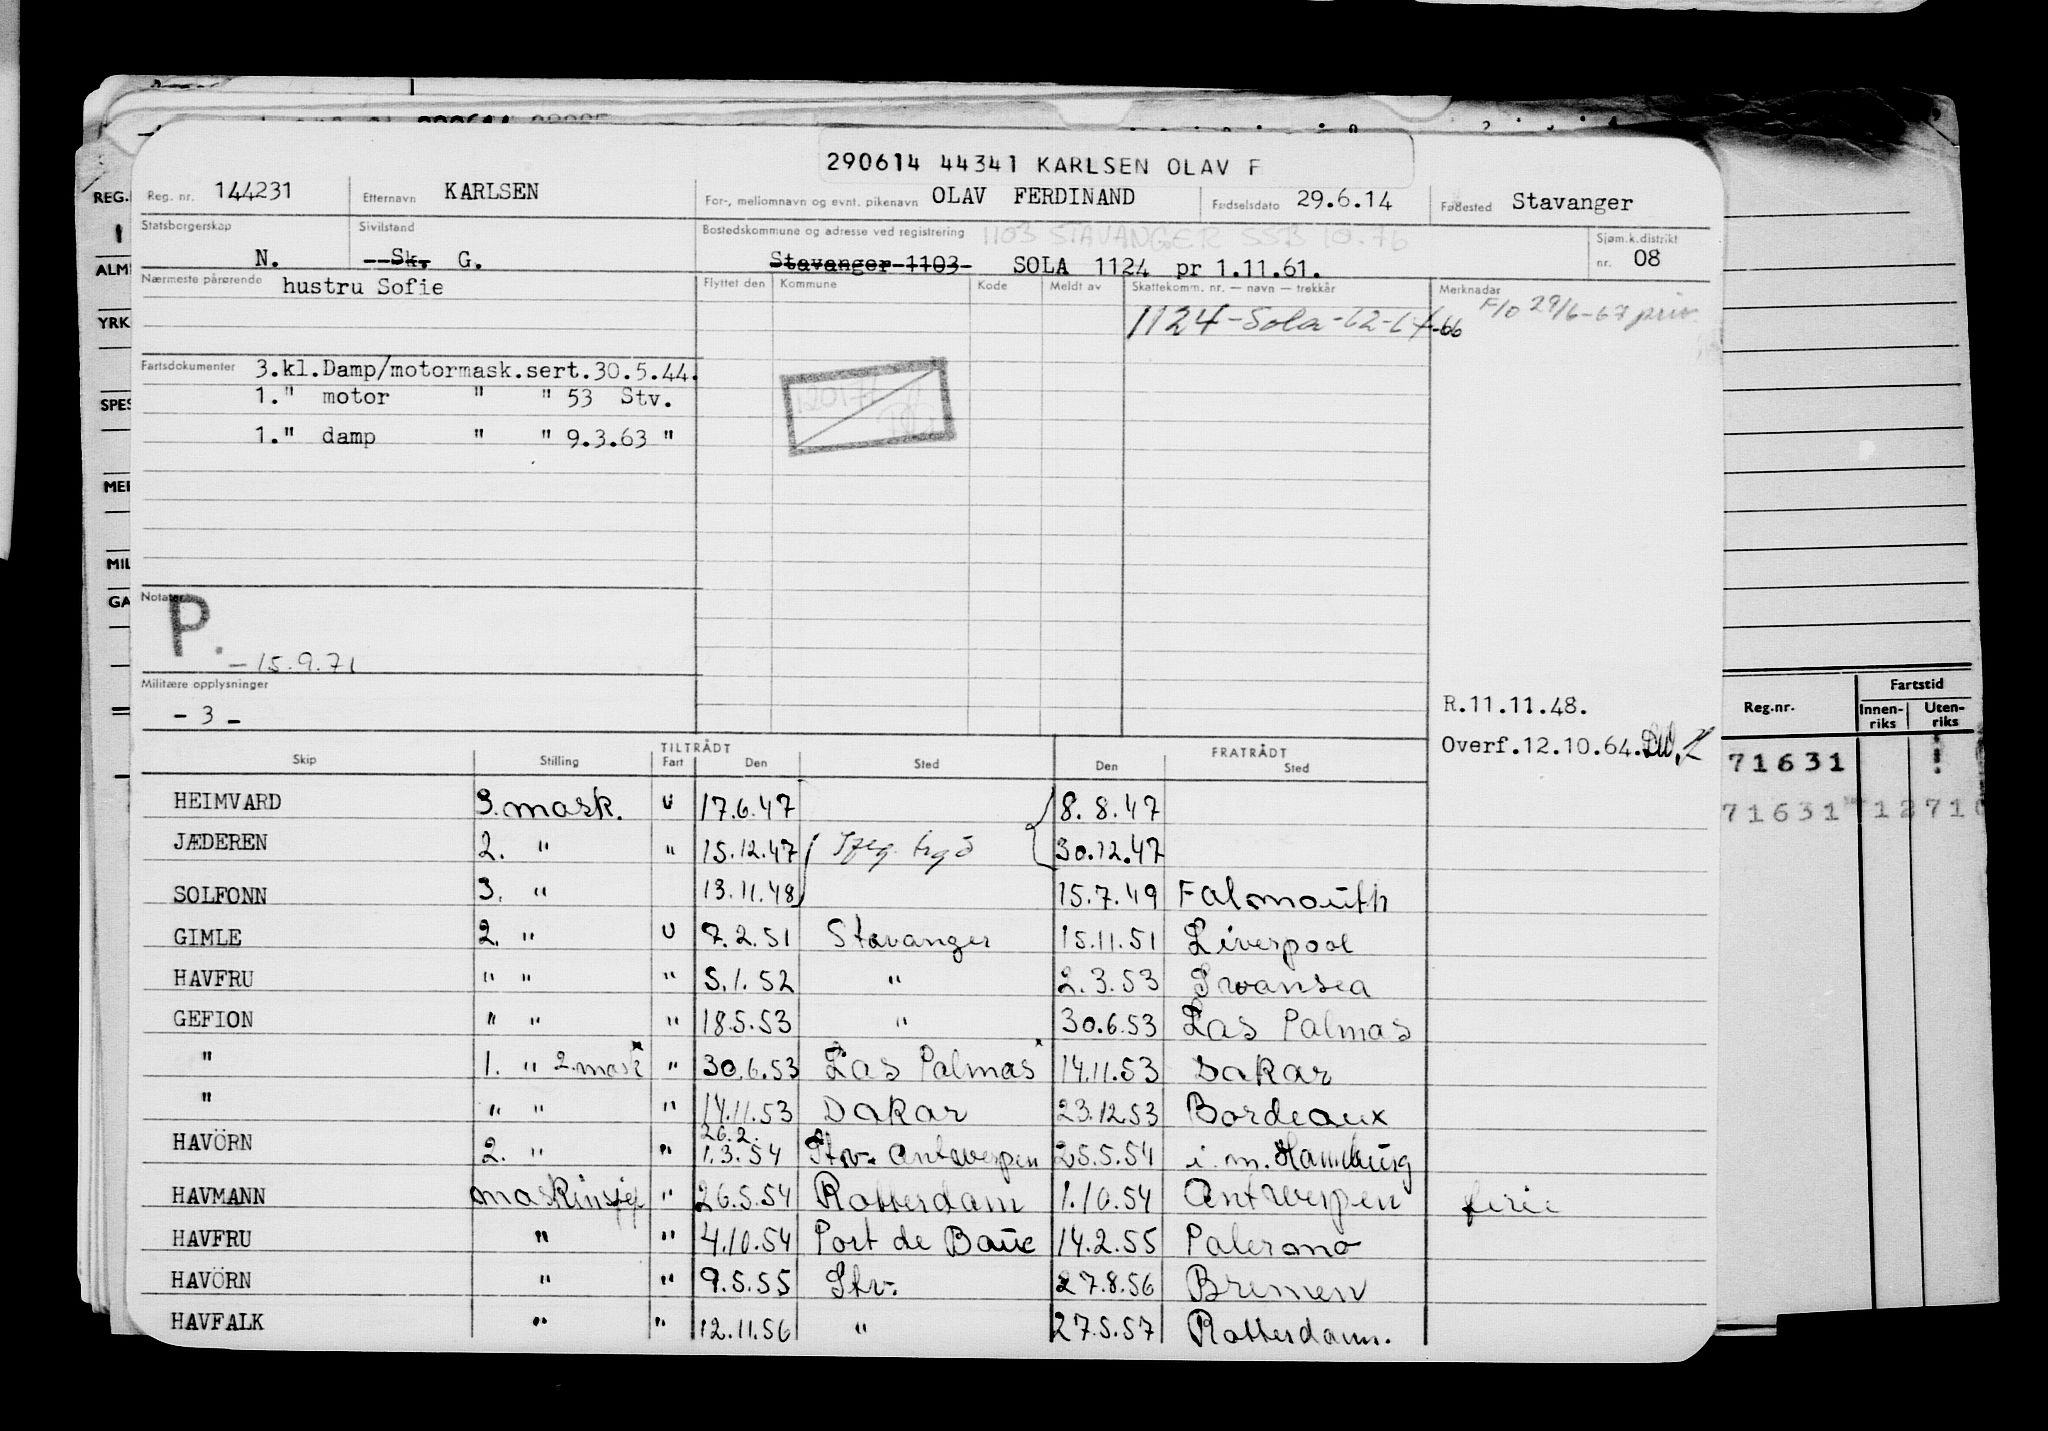 290614 44341 KARLSEN OLAV F
Reg. nr. 144231 Etternavn KARLSEN For-, mellomnavn og evnt. pikenavn OLAV FERDINAND Fødselsdato 29.6.14 Fødested Stavanger
REG.
Statsborgerskap Sivilstand Bostedskommune og adresse ved registrering 1103 STAVANGER SSB 10.76 Sjøm.k.distrikt
N. Sk. G. Stavanger 1103 SOLA 1124 pr 1.11.61. nr. 08
ALM
Nærmeste pårørende hustru Sofie Flyttet den Kommune Kode Meldt av Skattekomm. nr. — navn — trekkår Merknader F/O 29/6-67 priv.
YRK
1124-Sola-62-64-66
Fartsdokumenter 3.kl.Damp/motormask.sert.30.5.44.
SPES 1." motor " " 53 Stv.
1." damp " " 9.3.63 "
MIL
GA
Notater P. - 15.9.71
Militære opplysninger
- 3 -
R.11.11.48.
Overf.12.10.64.
Reg.nr. Fartstid
Innen-riks Uten-riks
71631
71631
TILTRÅDT FRATRÅDT
Skip Stilling Fart Den Sted Den Sted
HEIMVARD 3. mask. U 17.6.47 8.8.47
JÆDEREN 2. " " 15.12.47 30.12.47
SOLFONN 3. " 13.11.48 15.7.49 Falmouth
GIMLE 2. " U 7.2.51 Stavanger 15.11.51 Liverpool
HAVFRU " " " 5.1.52 " 2.3.53 Swansea
GEFION " " " 18.5.53 " 30.6.53 Las Palmas
" 1. " 2.mask " 30.6.53 Las Palmas 14.11.53 Dakar
" " " " 14.11.53 Dakar 23.12.53 Bordeaux
26.2.
HAVÖRN 2. " " 1.3.54 Stv. Antwerpen 25.5.54 i.m. Hamburg
HAVMANN maskinsjef " 26.5.54 Rotterdam 1.10.54 Antwerpen ferie
HAVFRU " " 4.10.54 Port de Bouc 14.2.55 Palermo
HAVÖRN " " 9.5.55 Stv. 27.8.56 Bremen
HAVFALK " " 12.11.56 " 27.5.57 Rotterdam.